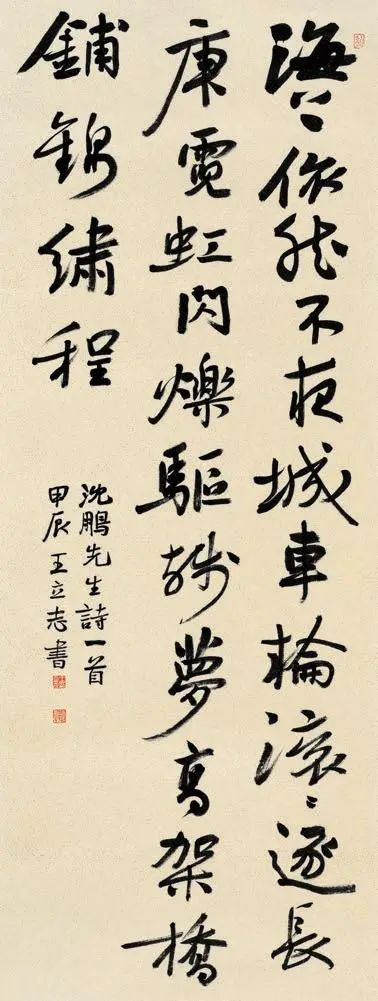 海上依然不夜城車輪滾〻逐長
庚霓虹閃爍驅殘夢高架橋
鋪錦繡程
沈鵬先生詩一首
甲辰王立志書